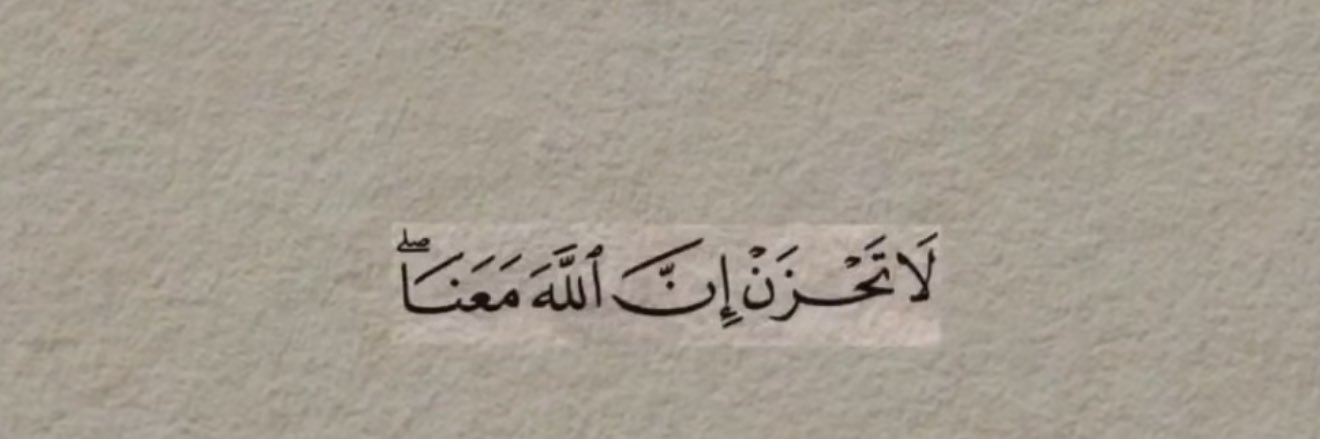 لَا تَحۡزَنۡ إِنَّ ٱللَّهَ مَعَنَاۖ